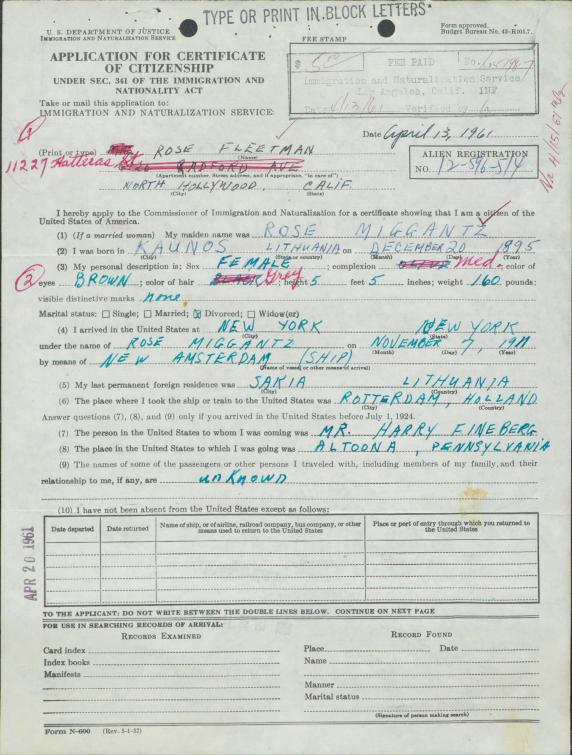 TYPE OR PRINT IN BLOCK LETTERS
U. S. DEPARTMENT OF JUSTICE
IMMIGRATION AND NATURALIZATION SERVICE
Form approved.
Budget Bureau No. 43-R001.7.
FEE STAMP
APPLICATION FOR CERTIFICATE
OF CITIZENSHIP
UNDER SEC. 341 OF THE IMMIGRATION AND
NATIONALITY ACT
FEE PAID No.
Immigration and Naturalization Service
Los Angeles, Calif. INF
Date 4/13/61 Verified by
Take or mail this application to:
IMMIGRATION AND NATURALIZATION SERVICE:
Date April 13, 1961
(Print or type) ROSE FLEETMAN
(Name)
11227 Hatteras St RADFORD AVE
(Apartment number, Street address, and if appropriate, "in care of")
NORTH HOLLYWOOD, CALIF.
(City) (State)
ALIEN REGISTRATION
NO. 12-596-514
I hereby apply to the Commissioner of Immigration and Naturalization for a certificate showing that I am a citizen of the
United States of America.
(1) (If a married woman) My maiden name was ROSE MIGGANTZ
(2) I was born in KAUNOS LITHUANIA on DECEMBER 20 1895
(City) (State or country) (Month) (Day) (Year)
(3) My personal description is: Sex FEMALE; complexion OLIVE med.; color of
eyes BROWN; color of hair BLACK Grey; height 5 feet 5 inches; weight 160 pounds;
visible distinctive marks none.
Marital status: ☐ Single; ☐ Married; ☒ Divorced; ☐ Widow(er)
(4) I arrived in the United States at NEW YORK NEW YORK
(City) (State)
under the name of ROSE MIGGANTZ on NOVEMBER 7, 1911
(Month) (Day) (Year)
by means of NEW AMSTERDAM (SHIP)
(Name of vessel or other means of arrival)
(5) My last permanent foreign residence was SAKIA LITHUANIA
(City) (Country)
(6) The place where I took the ship or train to the United States was ROTTERDAM, HOLLAND
(City) (Country)
Answer questions (7), (8), and (9) only if you arrived in the United States before July 1, 1924.
(7) The person in the United States to whom I was coming was MR. HARRY FINEBERG
(8) The place in the United States to which I was going was ALTOONA, PENNSYLVANIA
(9) The names of some of the passengers or other persons I traveled with, including members of my family, and their
relationship to me, if any, are unknown
(10) I have not been absent from the United States except as follows:
Date departed
Date returned
Name of ship, or of airline, railroad company, bus company, or other
means used to return to the United States
Place or port of entry through which you returned to
the United States
APR 20 1961
TO THE APPLICANT: DO NOT WRITE BETWEEN THE DOUBLE LINES BELOW. CONTINUE ON NEXT PAGE
FOR USE IN SEARCHING RECORDS OF ARRIVAL:
RECORDS EXAMINED
RECORD FOUND
Card index
Index books
Manifests
Place Date
Name
Manner
Marital status
(Signature of person making search)
Form N-600 (Rev. 5-1-57)